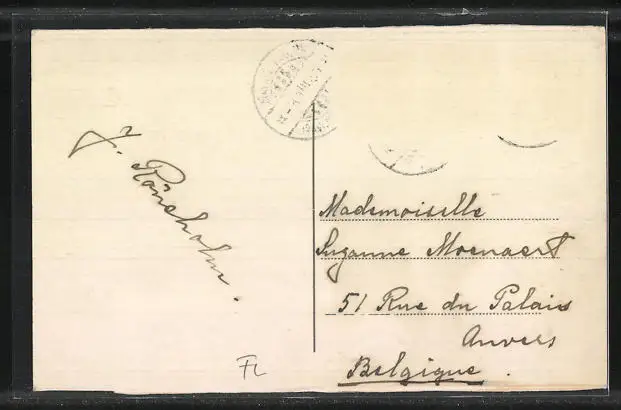 J. Röneholm.
Mademoiselle
Suzanne Moenaert
51 Rue du Palais
Anvers
Belgique.
FL